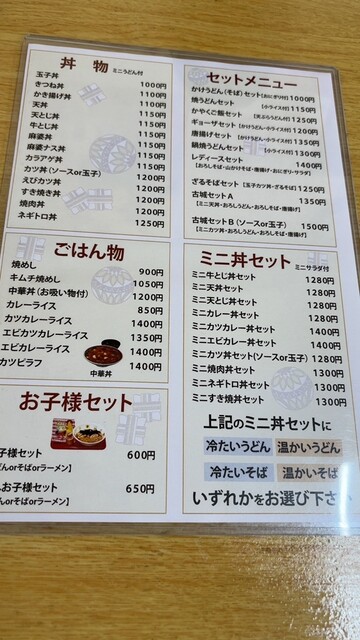 丼 物 ミニうどん付
玉子丼 1000円
きつね丼 1100円
かき揚げ丼 1100円
天丼 1150円
天とじ丼 1150円
牛とじ丼 1150円
麻婆丼 1150円
麻婆ナス丼 1150円
カラアゲ丼 1150円
カツ丼(ソースor玉子) 1200円
えびカツ丼 1200円
すき焼き丼 1200円
焼肉丼 1200円
ネギトロ丼 1250円
ごはん物
焼めし 900円
キムチ焼めし 1050円
中華丼(お吸い物付) 1200円
カレーライス 850円
カツカレーライス 1400円
エビカツカレーライス 1350円
エビカレーライス 1400円
カツピラフ 1400円
中華丼
お子様セット
子様セット 600円
んorそばorラーメン】
お子様セット 650円
んorそばorラーメン】
セットメニュー
かけうどん(そば)セット【おにぎり付】 1000円
焼うどんセット 【小ライス付】 1150円
かやくご飯セット 【天ぷらうどん付】 1250円
ギョーザセット 【かけうどん・小ライス付】 1200円
唐揚げセット 【かけうどん・小ライス付】 1350円
鍋焼うどんセット 【小ライス付】 1300円
レディースセット 1400円
【おろしそば・山かけそば・唐揚げ・おにぎり・サラダ】
ざるそばセット 【玉子カツ丼・ざるそば】 1250円
古城セットA 1350円
【ミニ天丼・おろしうどん・おろしそば・唐揚げ】
古城セットB(ソースor玉子) 1500円
【ミニカツ丼・おろしうどん・おろしそば・唐揚げ】
ミニ丼セット ミニサラダ付
ミニ牛とじ丼セット 1280円
ミニ天丼セット 1280円
ミニ天とじ丼セット 1280円
ミニカレー丼セット 1280円
ミニカツカレー丼セット 1400円
ミニエビカレー丼セット 1400円
ミニカツ丼セット(ソースor玉子) 1280円
ミニ焼肉丼セット 1300円
ミニネギトロ丼セット 1300円
ミニすき焼丼セット 1300円
上記のミニ丼セットに
冷たいうどん 温かいうどん
冷たいそば 温かいそば
いずれかをお選び下さい